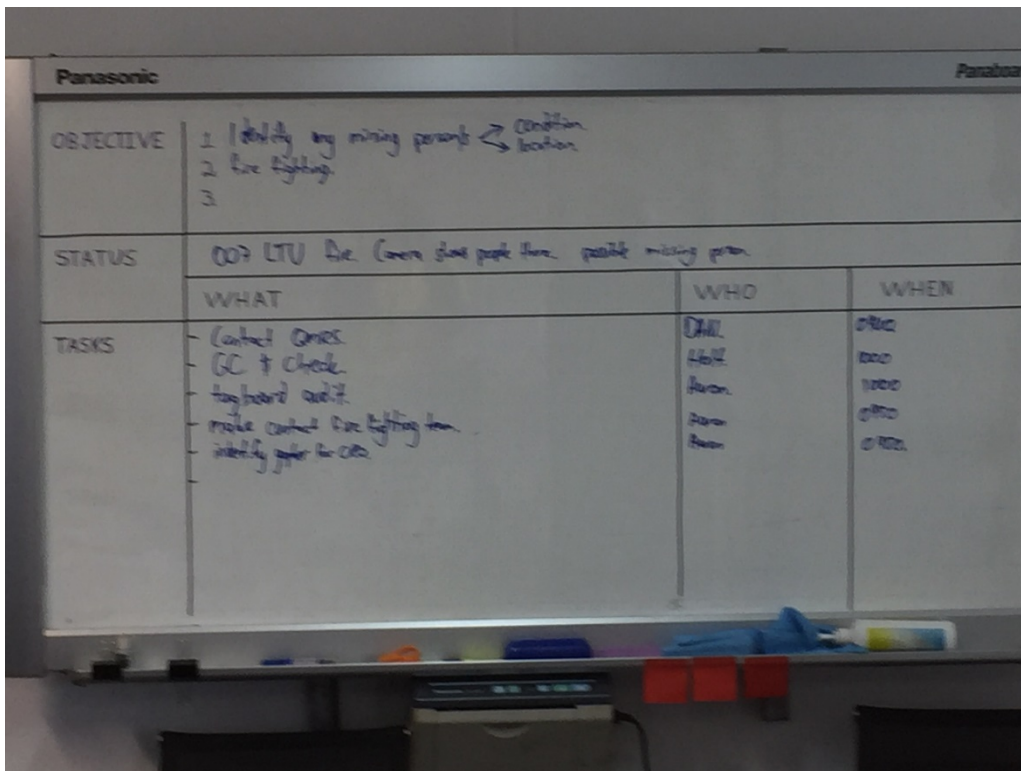 Panasonic
Panaboar
OBJECTIVE
1. Identify any missing persons condition
location.
2. fire fighting.
3.
STATUS
007 LTU fire. Camera shows people there. possible missing person.
WHAT WHO WHEN
TASKS
- Contact
- GC & Check. Holt 1000
- tagboard audit. Aaron. 1000
- make contact fire fighting team. Aaron
- identify for Aaron
-